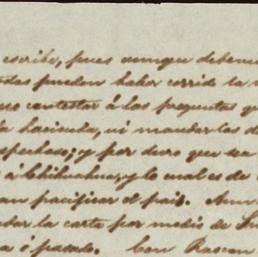 escribo, pues aunque debemo
das pueden haber corrido la
contestar á las preguntas q
la hacienda, ni mandar los d
spachado; y por duro que sea
á Chihuahua, y lo cual es de
an pacificar el pais. Aun
dar la carta por medio de
a ó pasado. Con Rascon